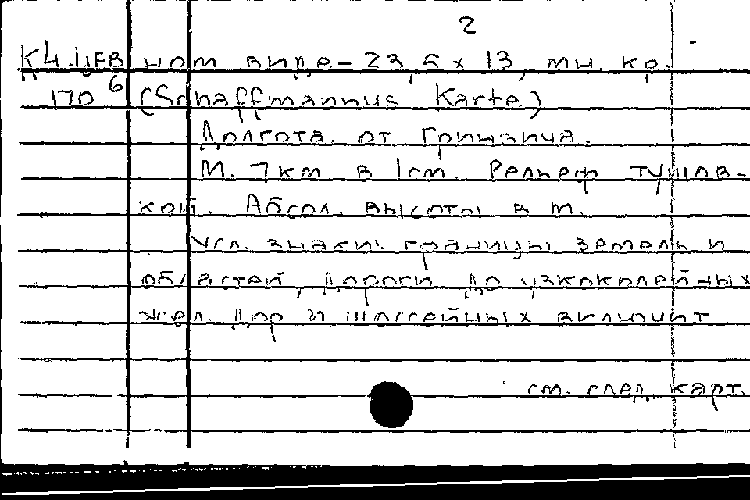 2
К4.ЦЕВ ном виде – 23,5 х 13, мн. кр.
170 6 (Schaffmannus Karte)
Долгота от Гринвича.
М. 7км в 1см. Рельеф тушев-
кой. Абсол. высоты в м.
Усл. знаки: границы земель и
областей, дороги до узкоколейных
жел. дор и шоссейных включит
см. след. карт.